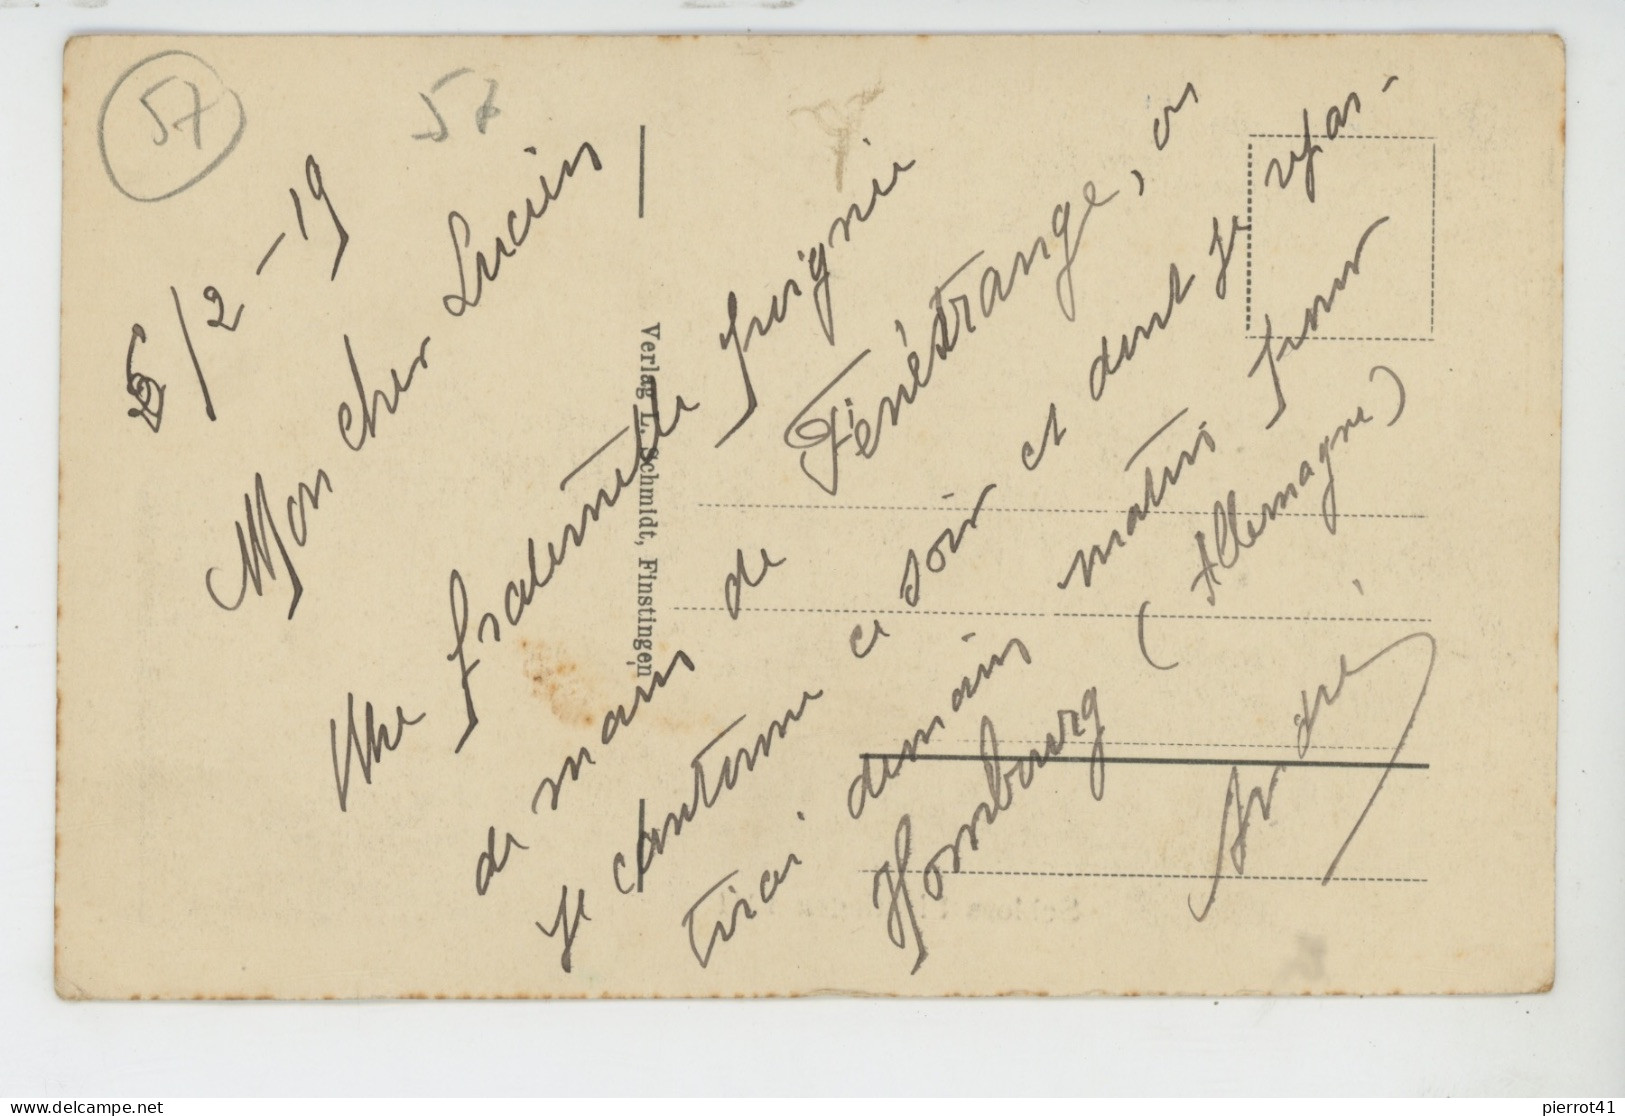 57
57
5/2-19
Mon cher Lucien
Une fraternelle poignée
de main de Fénétrange, où
je cantonne ce soir et dont je repar-
tirai demain matin pour
Hombourg (Allemagne)
André
Verlag L. Schmidt, Finstingen
pierrot41